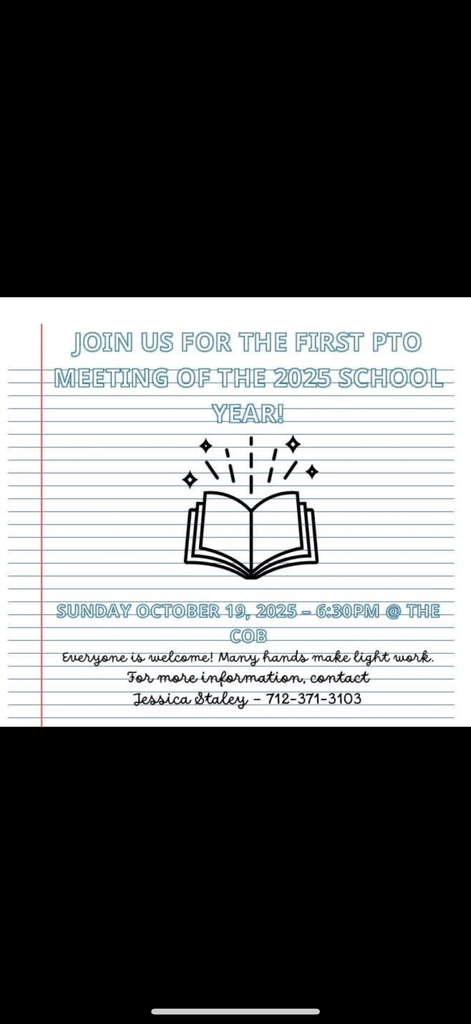 JOIN US FOR THE FIRST PTO
MEETING OF THE 2025 SCHOOL
YEAR!
SUNDAY OCTOBER 19, 2025 – 6:30PM @ THE
COB
Everyone is welcome! Many hands make light work.
For more information, contact
Jessica Staley – 712-371-3103